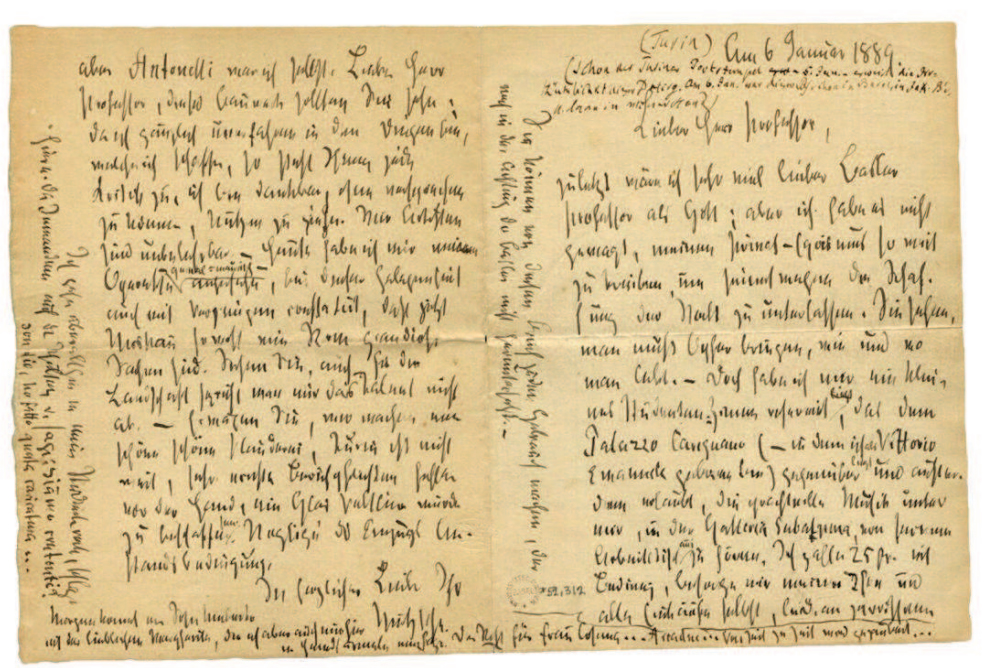 (Turin) Am 6 Januar 1889.
(Schon der Turiner Poststempel 5. Jan. erweist die
Lieber Herr Professor,
zuletzt wäre ich sehr viel lieber Basler
Professor als Gott; aber ich habe es nicht
gewagt, meinen Privat-Egoismus so weit
zu treiben, um seinetwegen die Schaf-
fung der Welt zu unterlassen. Sie sehen,
man muß Opfer bringen, wie und wo
man lebt. – Doch habe ich mir ein klei-
nes Studenten-Zimmer reservirt, das dem
Palazzo Carignano (– in dem ich als Vittorio
Emanuele geboren bin) gegenüber liegt und außer-
dem erlaubt, die prachtvolle Musik unter
mir, in der Galleria Subalpina, von seinem
Arbeitstisch aus zu hören. Ich zahle 25 fr. mit
Bedienung, besorge mir meinen Thee und
alle Einkäufe selbst, leide an zerrissenen
52,312
aber Antonelli war ich selbst. Lieber Herr
Professor, dieses Bauwerk sollten Sie sehn;
da ich gänzlich unerfahren in den Dingen bin,
welche ich schaffe, so steht Ihnen jede
Kritik zu, ich bin dankbar, ohne versprechen
zu können, Nutzen zu ziehn. Wir Artisten
sind unbelehrbar. – Heute habe ich mir meine
Operette – genial-maurisch – angesehn, bei dieser Gelegenheit
auch mit Vergnügen constatirt, daß jetzt
Moskau sowohl wie Rom grandiose
Sachen sind. Sehen Sie, auch für die
Landschaft spricht man mir das Talent nicht
ab. – Erwägen Sie, wir machen eine
schöne schöne Plauderei, Turin ist nicht
weit, sehr ernste Berufspflichten fehlen
vor der Hand, ein Glas Veltliner würde
zu beschaffen sein. Negligé des Anzugs An-
standsbedingung.
In herzlicher Liebe Ihr
Nietzsche.
Morgen kommt mein Sohn Umberto
mit der lieblichen Margherita, die ich aber auch nur hier
in Hemdsärmeln empfange. Der Rest für Frau Cosima... Ariadne... Von Zeit zu Zeit wird gezaubert...
Ich gehe überall hin in meinem Studentenrock, schlage
hier und da Jemandem auf die Schulter und sage: siamo contenti?
son dio, ho fatto questa caricatura...
Sie können von diesem Brief jeden Gebrauch machen, der
mich in der Achtung der Basler nicht heruntersetzt. –